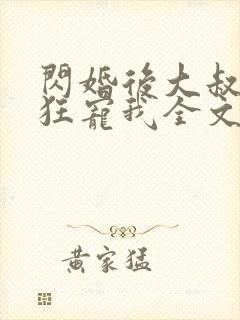 閃婚後大叔
狂寵我全文
黃家猛